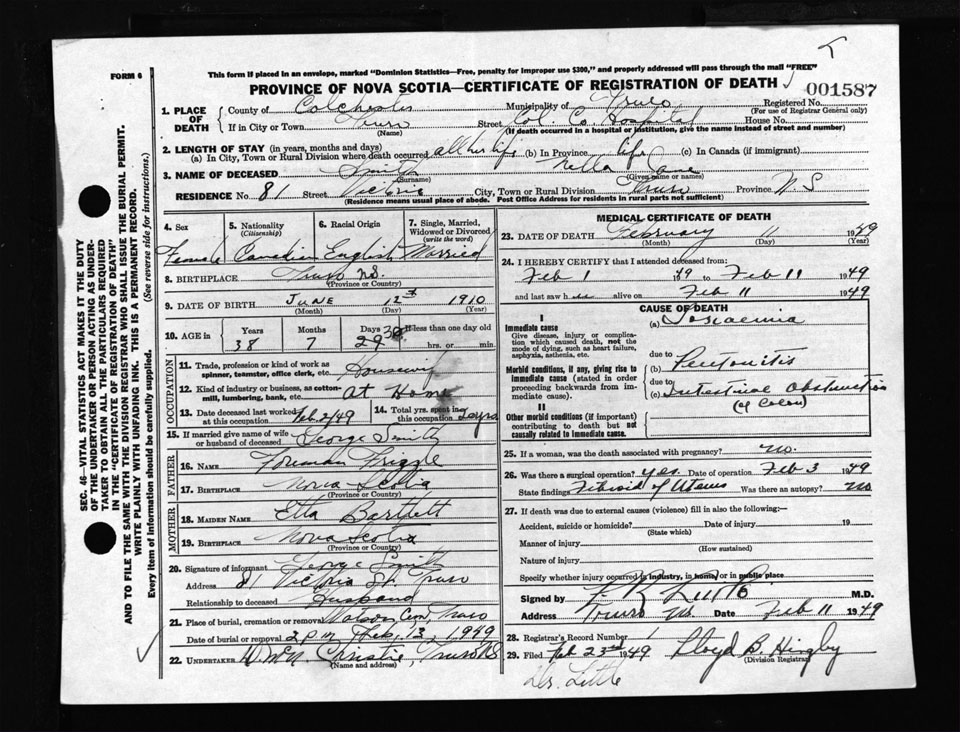 T
FORM 6
This form if placed in an envelope, marked "Dominion Statistics—Free, penalty for improper use $300," and properly addressed will pass through the mail "FREE"
PROVINCE OF NOVA SCOTIA—CERTIFICATE OF REGISTRATION OF DEATH
001587
1. PLACE OF DEATH
County of Colchester Municipality of Truro Registered No.
(For use of Registrar General only)
If in City or Town Truro Street Col. Co. Hospital House No.
(Name) (If death occurred in a hospital or institution, give the name instead of street and number)
2. LENGTH OF STAY (in years, months and days)
(a) In City, Town or Rural Division where death occurred all her life (b) In Province life (c) In Canada (if immigrant)
3. NAME OF DECEASED Smith Jane
(Surname) (Given name or names)
RESIDENCE No. 81 Street Victoria City, Town or Rural Division Truro Province N S
(Residence means usual place of abode. Post Office Address for residents in rural parts not sufficient)
4. Sex Female
5. Nationality (Citizenship) Canadian
6. Racial Origin English
7. Single, Married, Widowed or Divorced (write the word) Married
8. BIRTHPLACE Truro N.S.
(Province or Country)
9. DATE OF BIRTH JUNE 12 1910
(Month) (Day) (Year)
10. AGE in Years Months Days If less than one day old
38 7 29 30 hrs. or min.
OCCUPATION
11. Trade, profession or kind of work as spinner, teamster, office clerk, etc. Housewife
12. Kind of industry or business, as cotton-mill, lumbering, bank, etc. At Home
13. Date deceased last worked at this occupation Feb 2/49
14. Total yrs. spent in this occupation
15. If married give name of wife or husband of deceased George Smith
FATHER
16. NAME
17. BIRTHPLACE Nova Scotia
(Province or Country)
MOTHER
18. MAIDEN NAME Etta Bartlett
19. BIRTHPLACE Nova Scotia
(Province or Country)
20. Signature of informant George Smith
Address 81 Victoria St. Truro
Relationship to deceased Husband
21. Place of burial, cremation or removal Watson Cem, Truro
Date of burial or removal 2 p.m Feb. 13, 1949
22. UNDERTAKER Christie, Truro NS
(Name and address)
MEDICAL CERTIFICATE OF DEATH
23. DATE OF DEATH February 11 1949
(Month) (Day) (Year)
24. I HEREBY CERTIFY that I attended deceased from:
Feb 1 1949 to Feb 11 1949
and last saw her alive on Feb 11 1949
CAUSE OF DEATH
I
Immediate cause
Give disease, injury or complication which caused death, not the mode of dying, such as heart failure, asphyxia, asthenia, etc.
(a) Toxaemia
due to
Morbid conditions, if any, giving rise to immediate cause (stated in order proceeding backwards from immediate cause).
(b) Peritonitis
due to
(c) Intestinal Obstruction
(of Colon)
II
Other morbid conditions (if important) contributing to death but not causally related to immediate cause.
25. If a woman, was the death associated with pregnancy? no.
26. Was there a surgical operation? yes. Date of operation Feb 3 1949
State findings Fibroid of Uterus Was there an autopsy? no
27. If death was due to external causes (violence) fill in also the following:—
Accident, suicide or homicide? Date of injury 19
(State which)
Manner of injury
(How sustained)
Nature of injury
Specify whether injury occurred in industry, in home, or in public place
Signed by M.D.
Address Truro NS Date Feb 11 1949
28. Registrar's Record Number 1
29. Filed Feb 23rd 1949 Lloyd B. Higby
(Division Registrar)
Dr. Little
SEC. 46—VITAL STATISTICS ACT MAKES IT THE DUTY
OF THE UNDERTAKER OR PERSON ACTING AS UNDER-
TAKER TO OBTAIN ALL THE PARTICULARS REQUIRED
IN THE "CERTIFICATE OF REGISTRATION OF DEATH"
AND TO FILE THE SAME WITH THE DIVISION REGISTRAR WHO SHALL ISSUE THE BURIAL PERMIT.
WRITE PLAINLY WITH UNFADING INK. THIS IS A PERMANENT RECORD.
Every item of information should be carefully supplied. (See reverse side for instructions.)